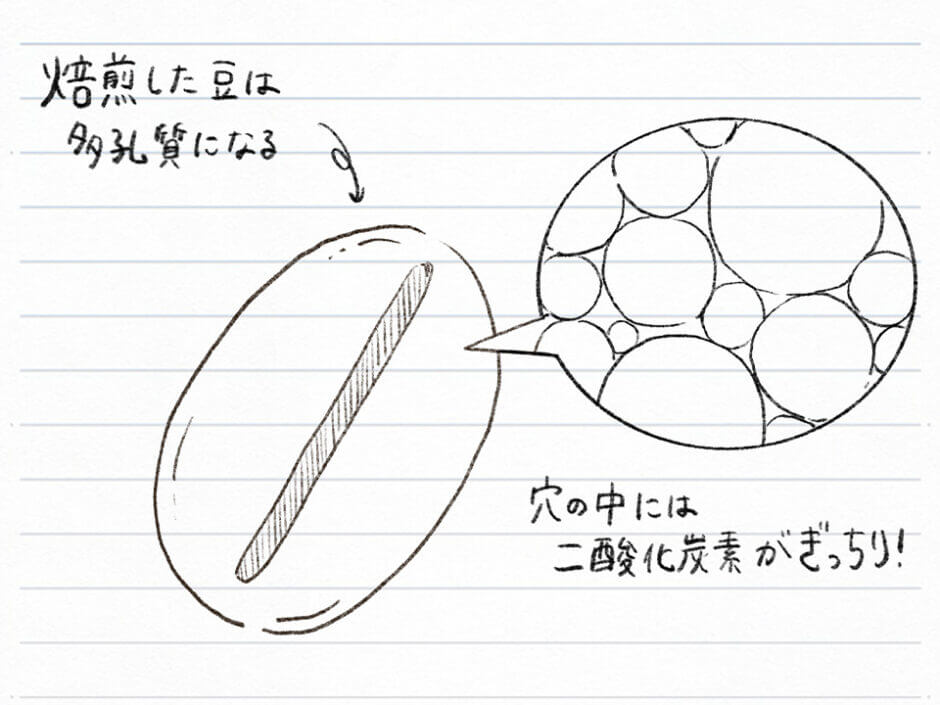 焙煎した豆は
多孔質になる
穴の中には
二酸化炭素がぎっちり!